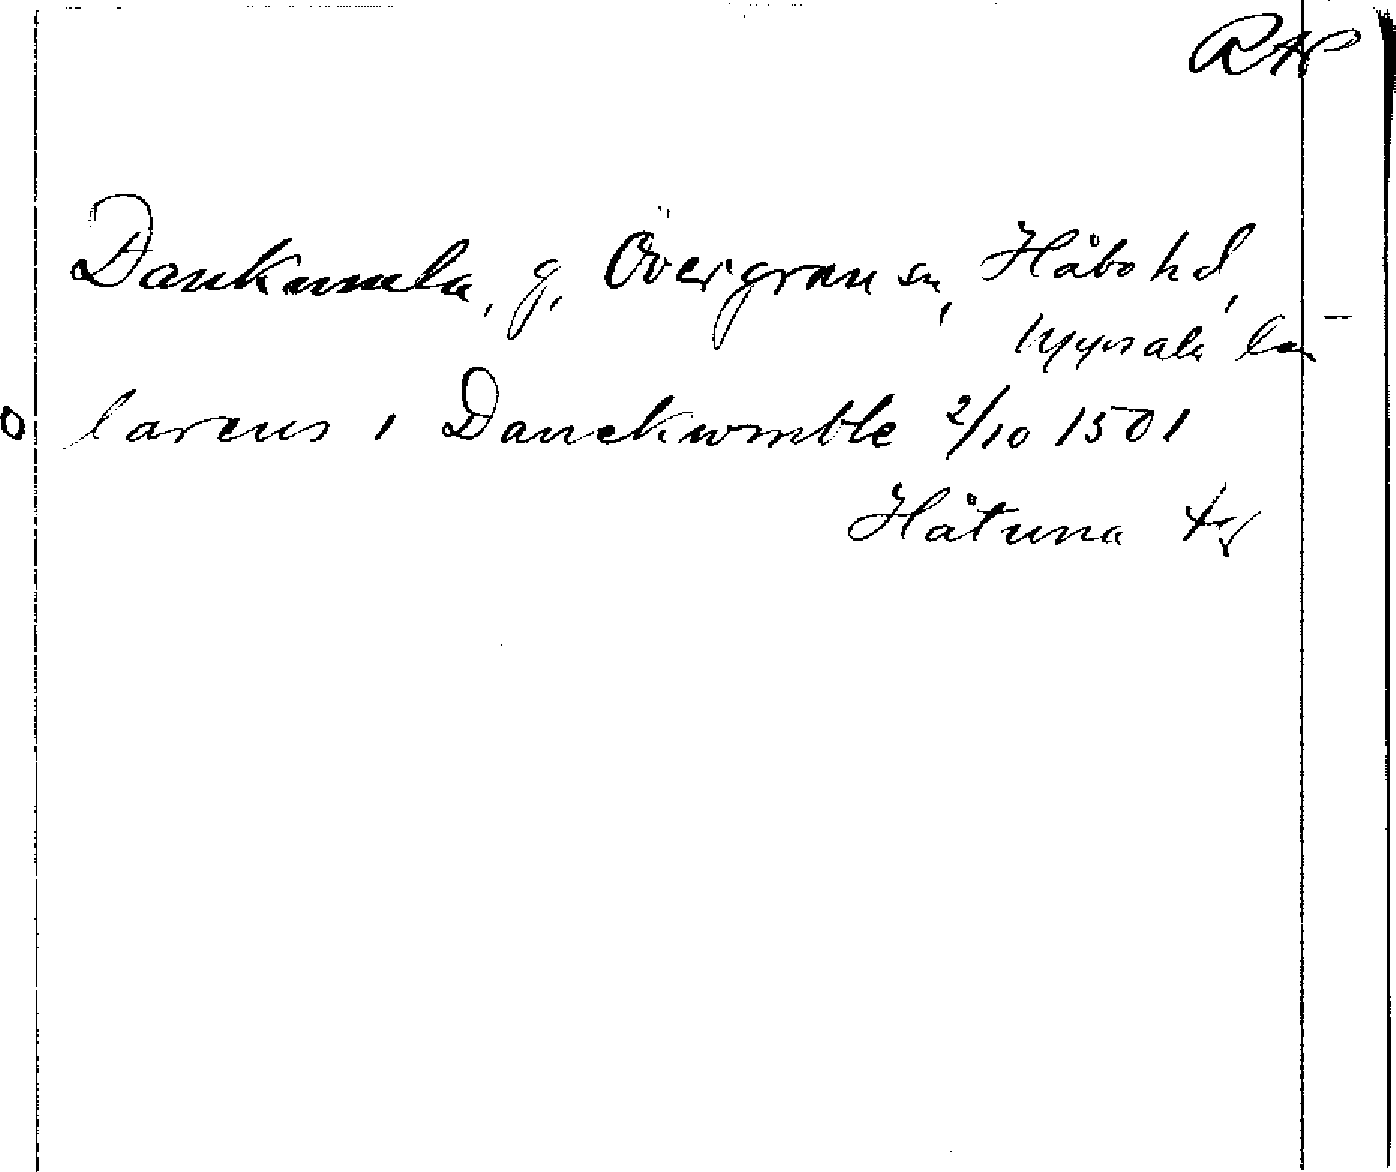 RAP
Dankumla, g, Övergran sn, Håbo hd,
Uppsala län
o larens i Danckwmble 2/10 1501
Håtuna